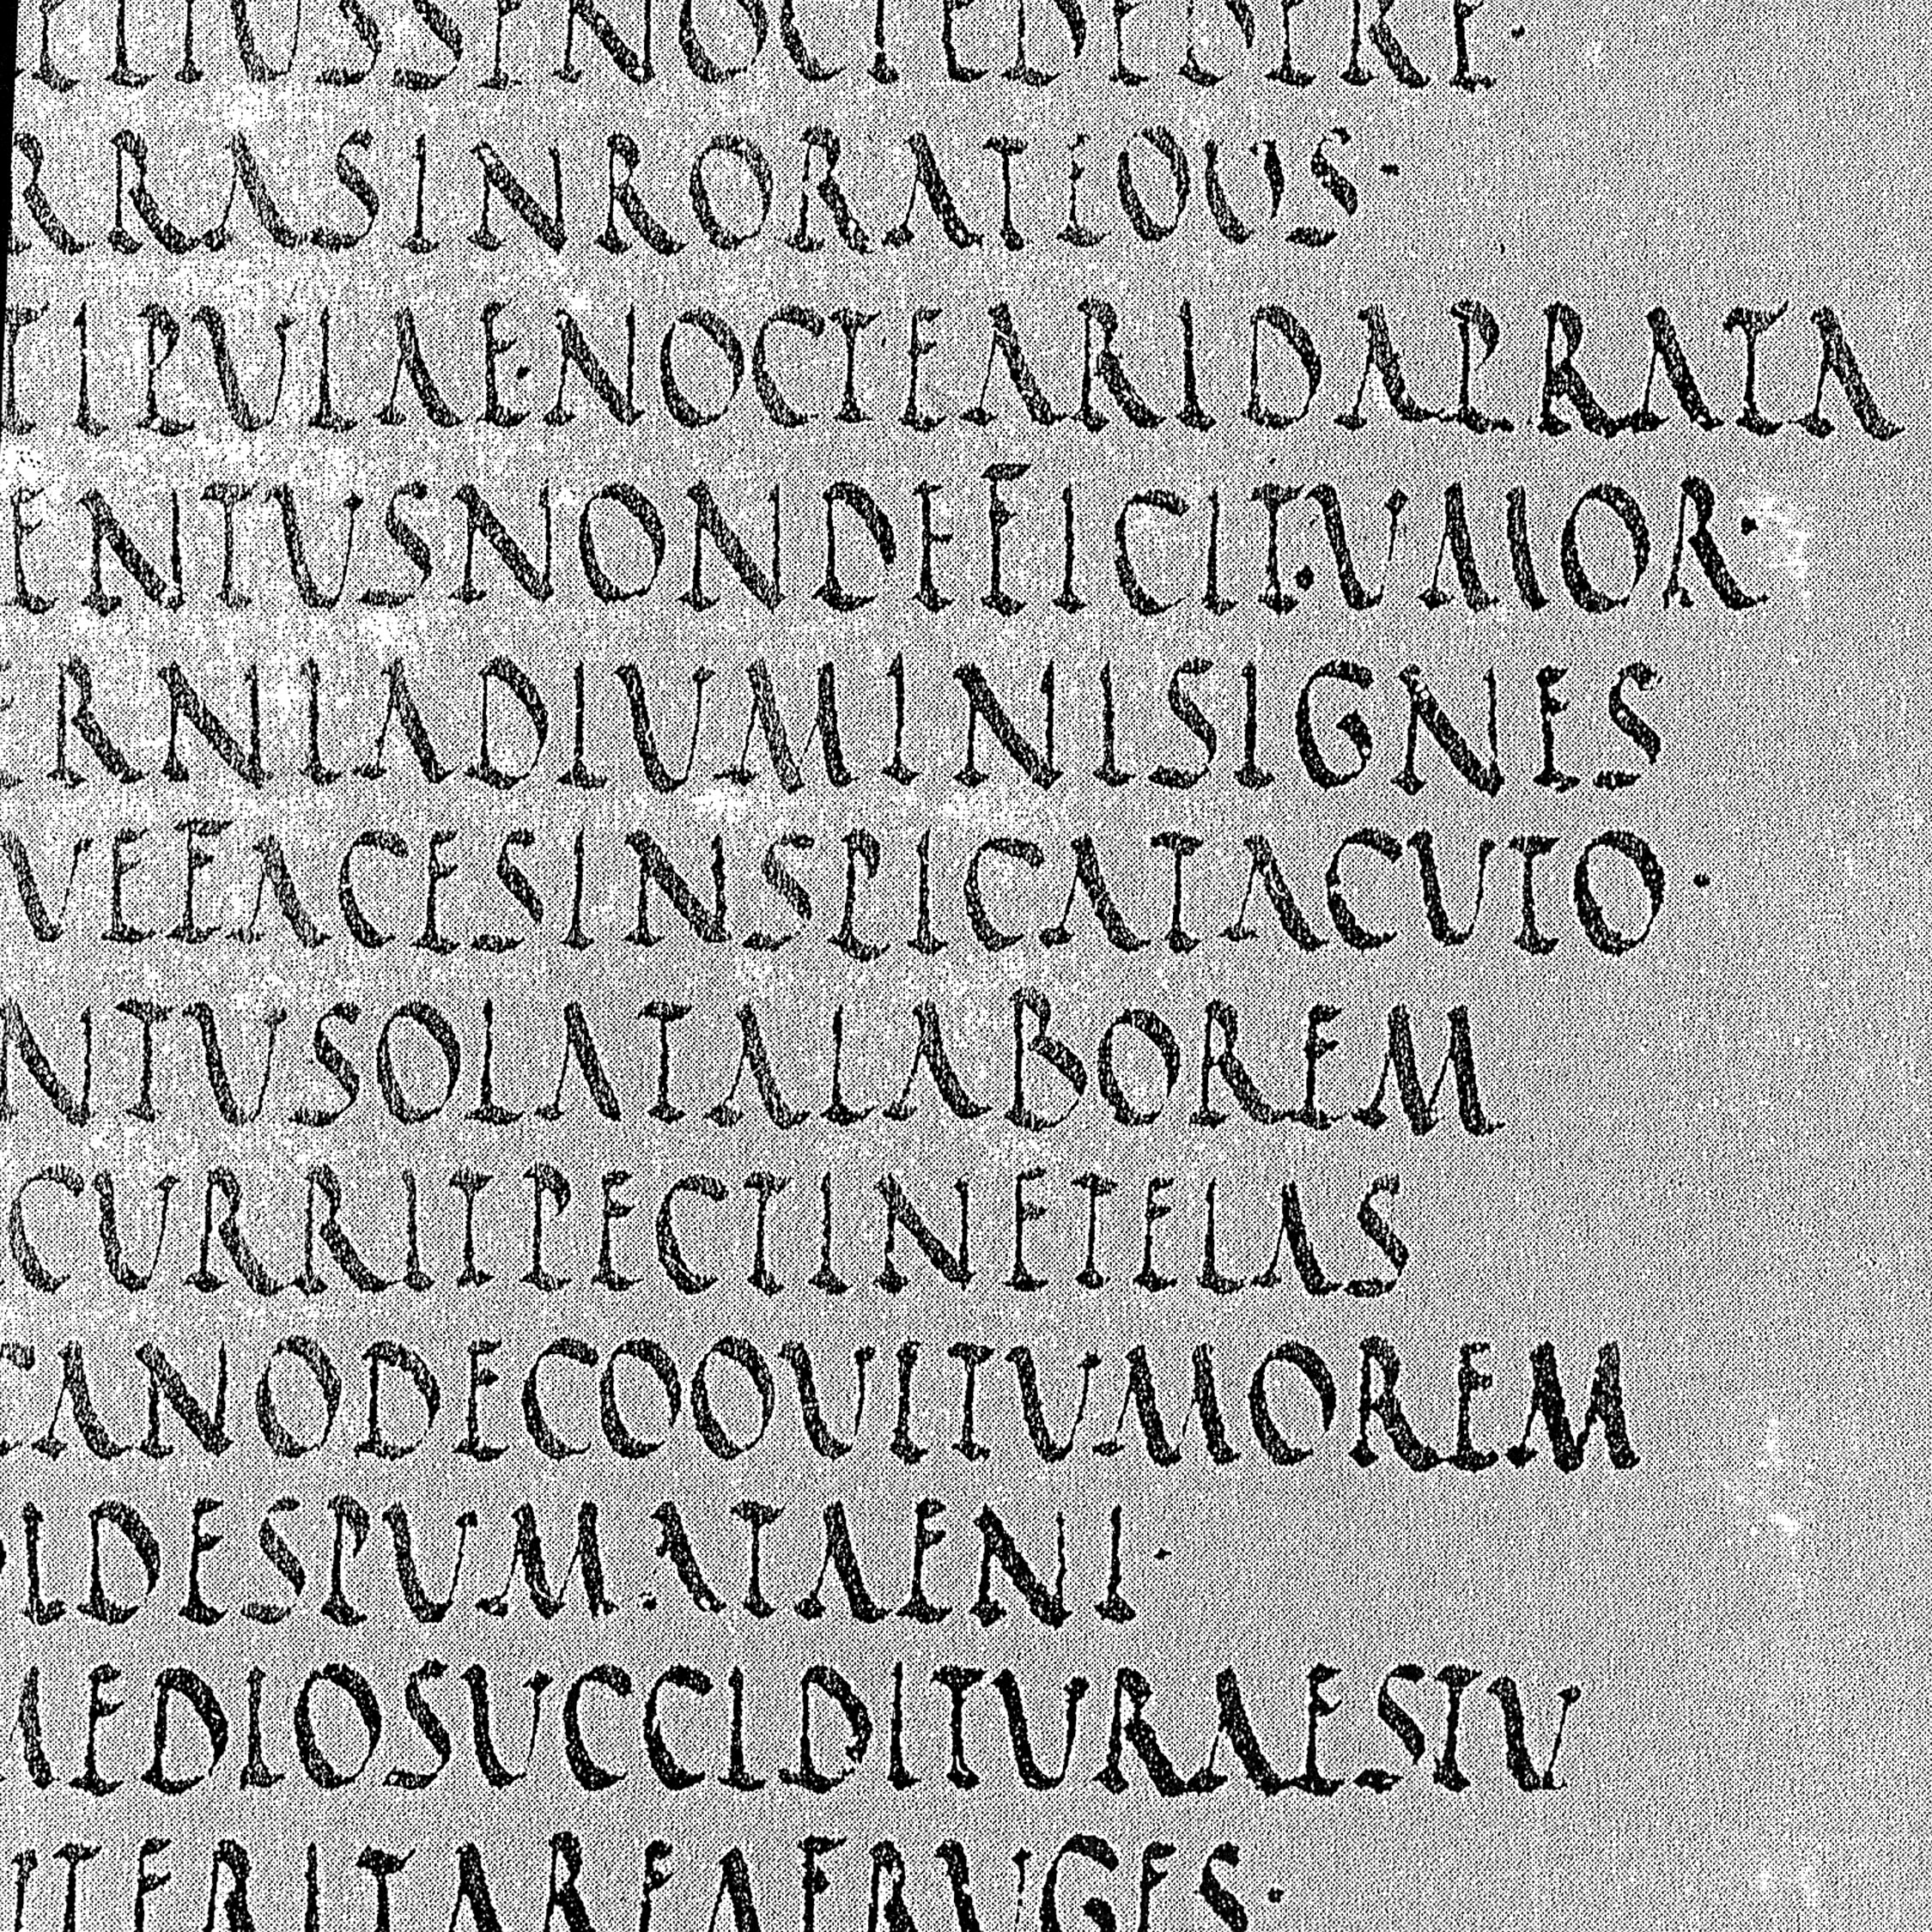 ELIUSSENOCTEDEDERE·
RRASINRORATEOUS·
TIPULAE·NOCTEARIDAPRATA
ENTUSNONDEFICIT·UMOR·
ERNIADLUMINISIGNES
UEFACESINSPICATACUTO·
NTUSOLATALABOREM
CURRITPECTINETELAS
CANODECOQUITUMOREM
IDESPUMATAENI·
MEDIOSUCCIDITURAESTU
UTERITAREAFRUGES·